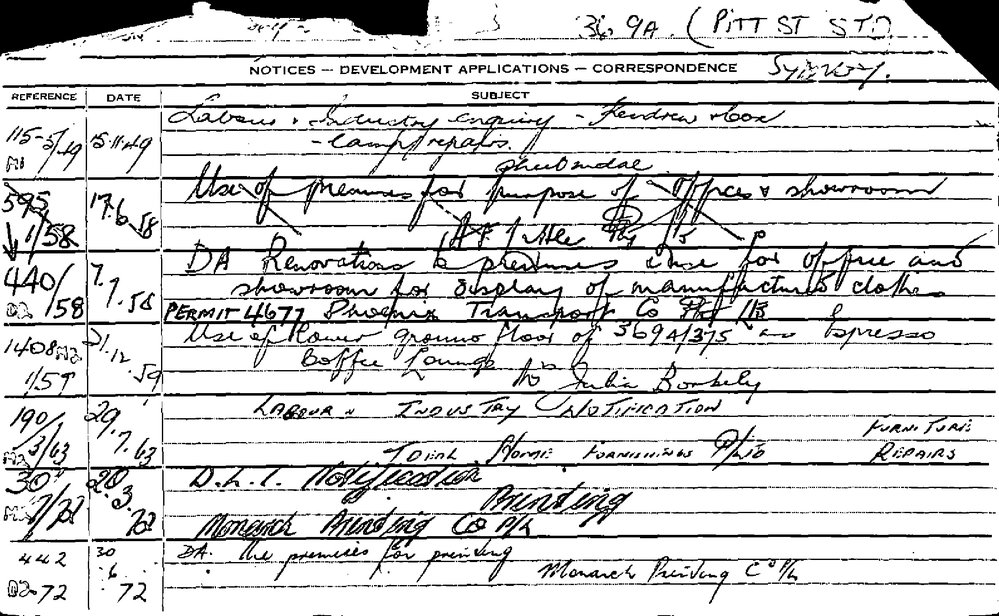 369A. (PITT ST ST.)
NOTICES — DEVELOPMENT APPLICATIONS — CORRESPONDENCE SYDNEY.
REFERENCE DATE SUBJECT
Labour & Industry enquiry -
115-5/49 15.11.49 - lamp repairs.
Use of premises for purpose of offices & showroom
595
1/58 17.6.58
DA Renovations to premises & use for office and
440/ 7.7.58 showroom for display of manufactured clothing
58 PERMIT 4677 Phoenix Transport Co Pty Ltd
Use of lower ground floor of 369A/375 as Espresso
1408 21.12.59 Coffee Lounge
1/59 Julia
190/ 29.7.63 LABOUR & INDUSTRY NOTIFICATION
3/63 IDEAL HOME FURNISHINGS P/LTD FURNITURE REPAIRS
30 20.3.72 D.L.I. Notification
7/72 Printing
Monarch Printing Co P/L
442 30.6.72 DA. The premises for printing
72 Monarch Printing Co P/L